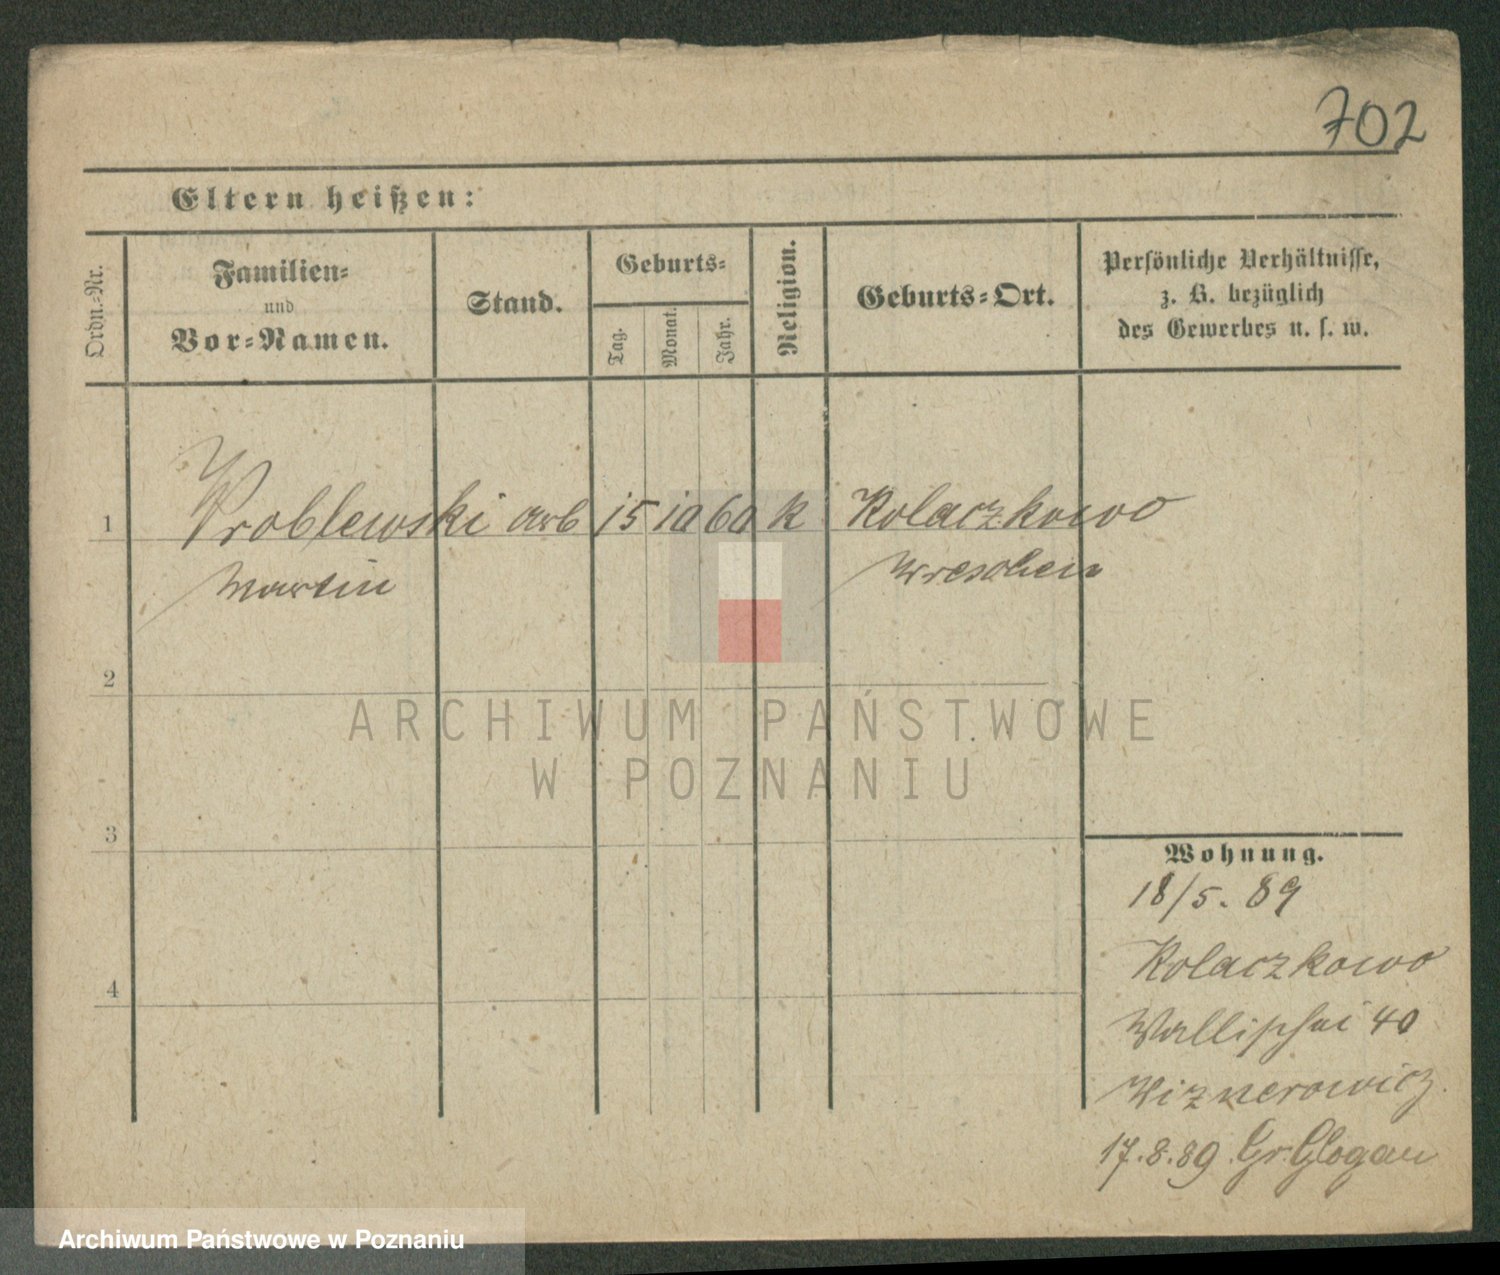 702
Eltern heißen:
Ordn.-Nr.
Familien-
und
Vor-Namen.
Stand.
Geburts-
Tag.
Monat.
Jahr.
Religion.
Geburts-Ort.
Persönliche Verhältnisse,
z. B. bezüglich
des Gewerbes u. s. w.
1 Wroblewski arb 15 10 60 k Kolaczkowo
Martin Wreschen
2
ARCHIWUM PAŃSTWOWE
W POZNANIU
3
Wohnung.
18/5. 89
Kolaczkowo
4
Wallischei 40
Wiznerowicz.
17.8.89 Gr. Glogau
Archiwum Państwowe w Poznaniu